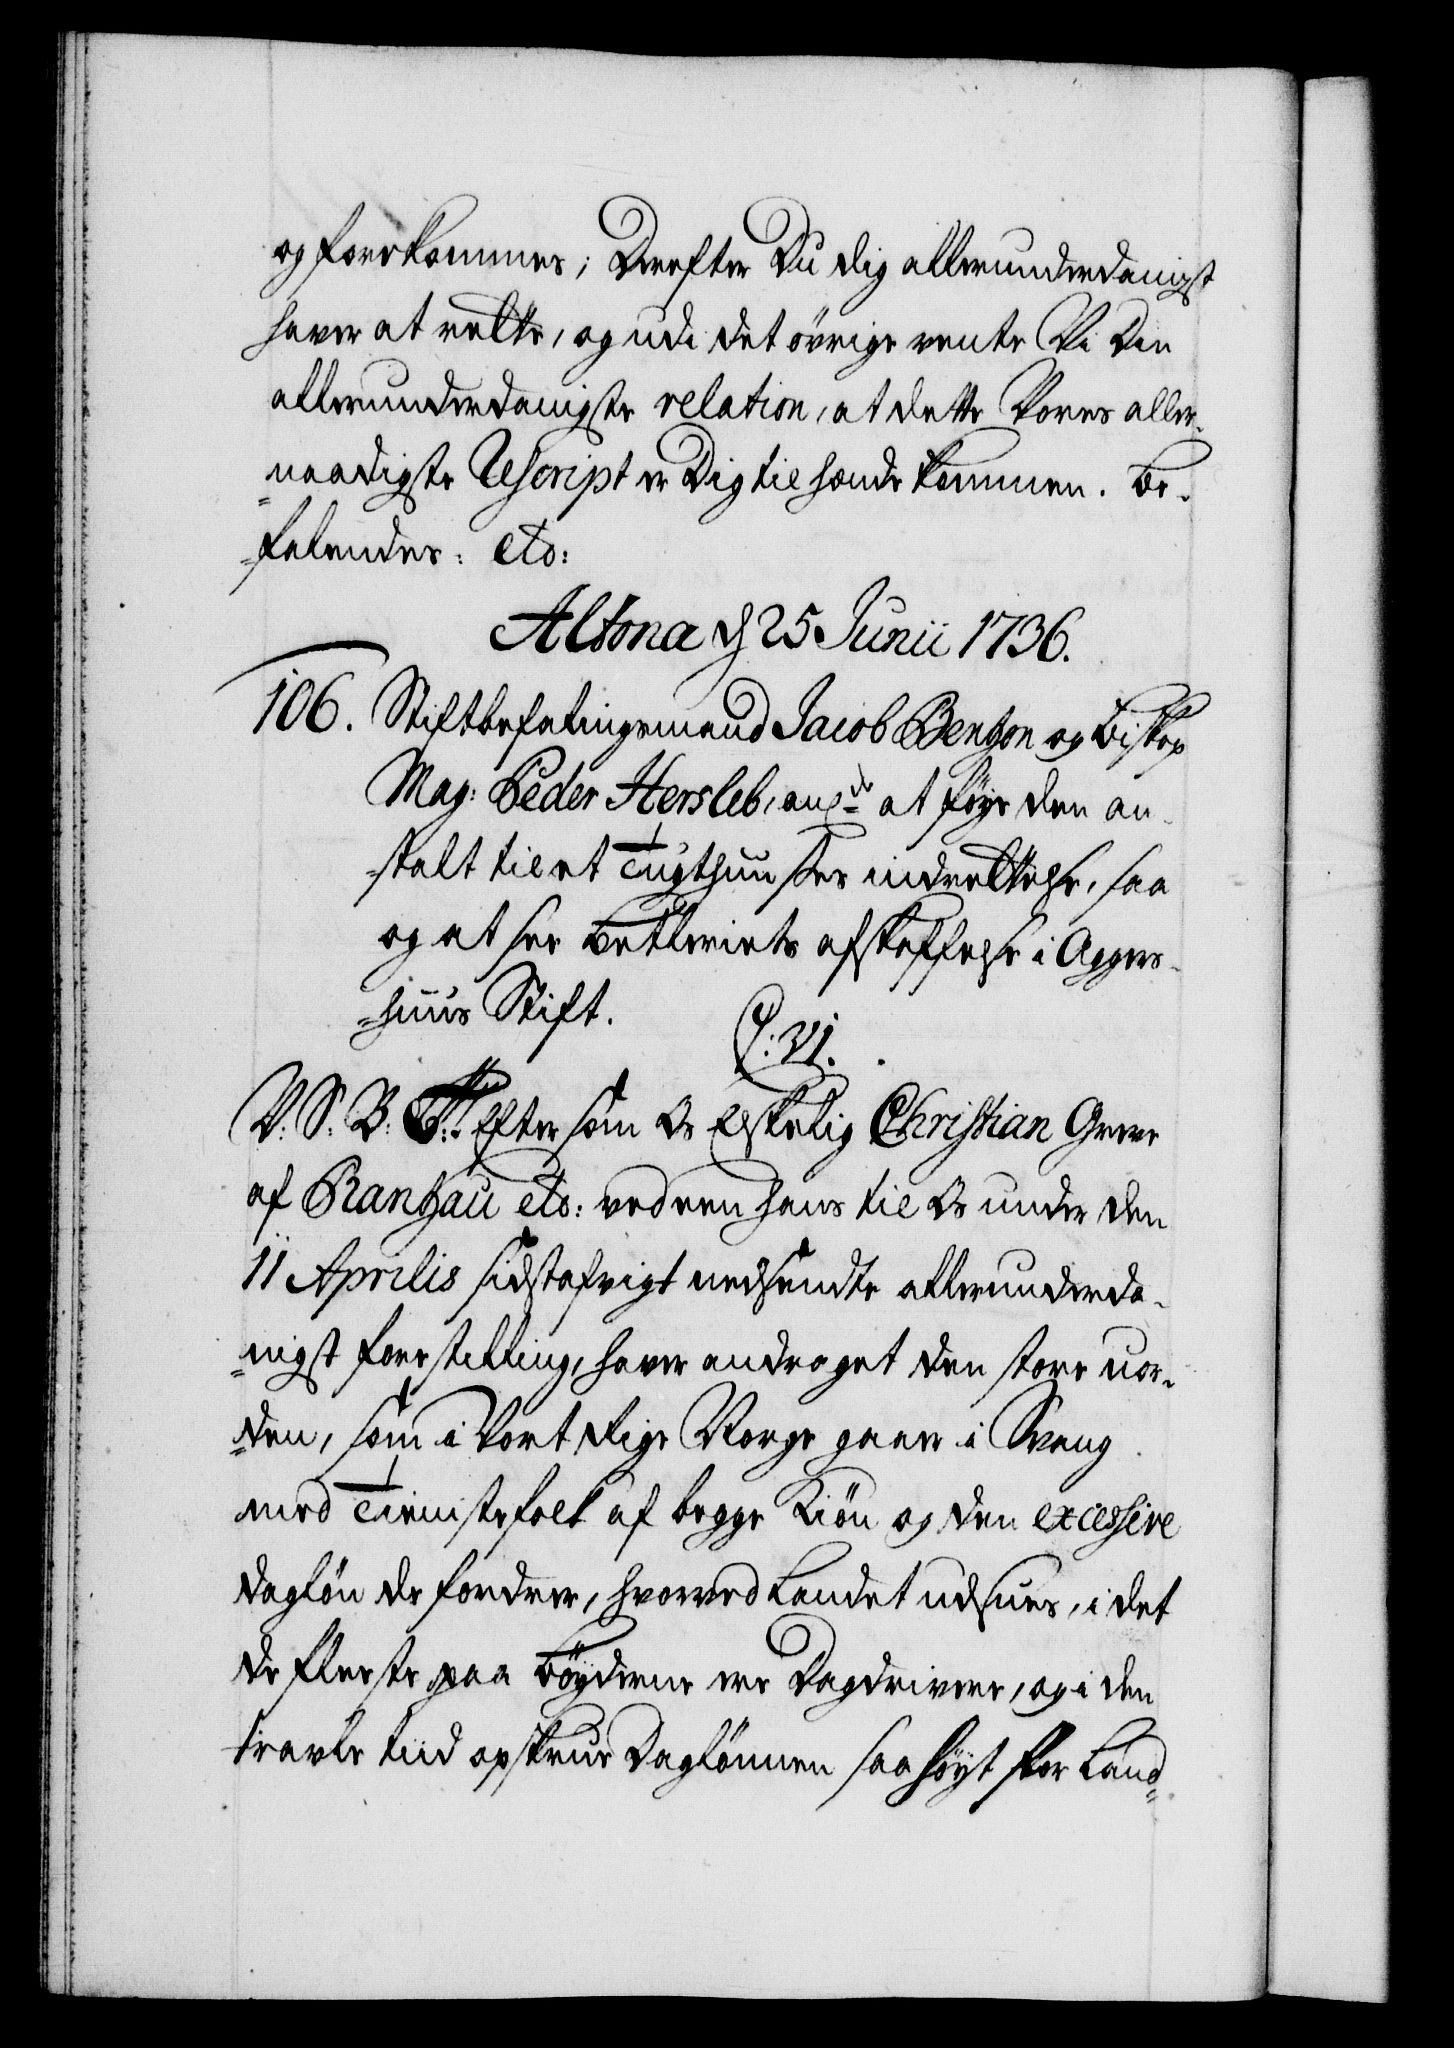 og forekommes; Derefter Du dig allerunderdanigst
haver at rette, og udi det övrige vente Vi Din
allerunderdanigste relation, at dette Vores aller-
naadigste Rescript er Dig til hænde kommen. Be-
falendes: etc:
Altona d 25 Junii 1736.
106. Stiftbefalingsmand Jacob Bentzon og Biskop
Mag: Peder Hersleb, ang at föye den an-
stalt til et Tugthuuses indrettelse, saa
og at see Betleriets afskaffelse i Aggers-
huus Stift.
C: VI.
V. S. B: G:. Eftersom Os Elskelig Christian Greve
af Rantzau etc: ved een hans til Os under den
11 Aprilis sidstafvigt nedsendte allerunderda-
nigst forestilling, haver andraget den store uor-
den, som i Vort Rige Norge gaaer i Svang
med Tienistefolk af begge Kiön og den excessive
Daglön de fordrer, hvorved Landet udsues, i det
de fleste paa Böyderne ere Dagdrivere, og i den
travle tiid opskrue Daglönnen saa höyt for Land-